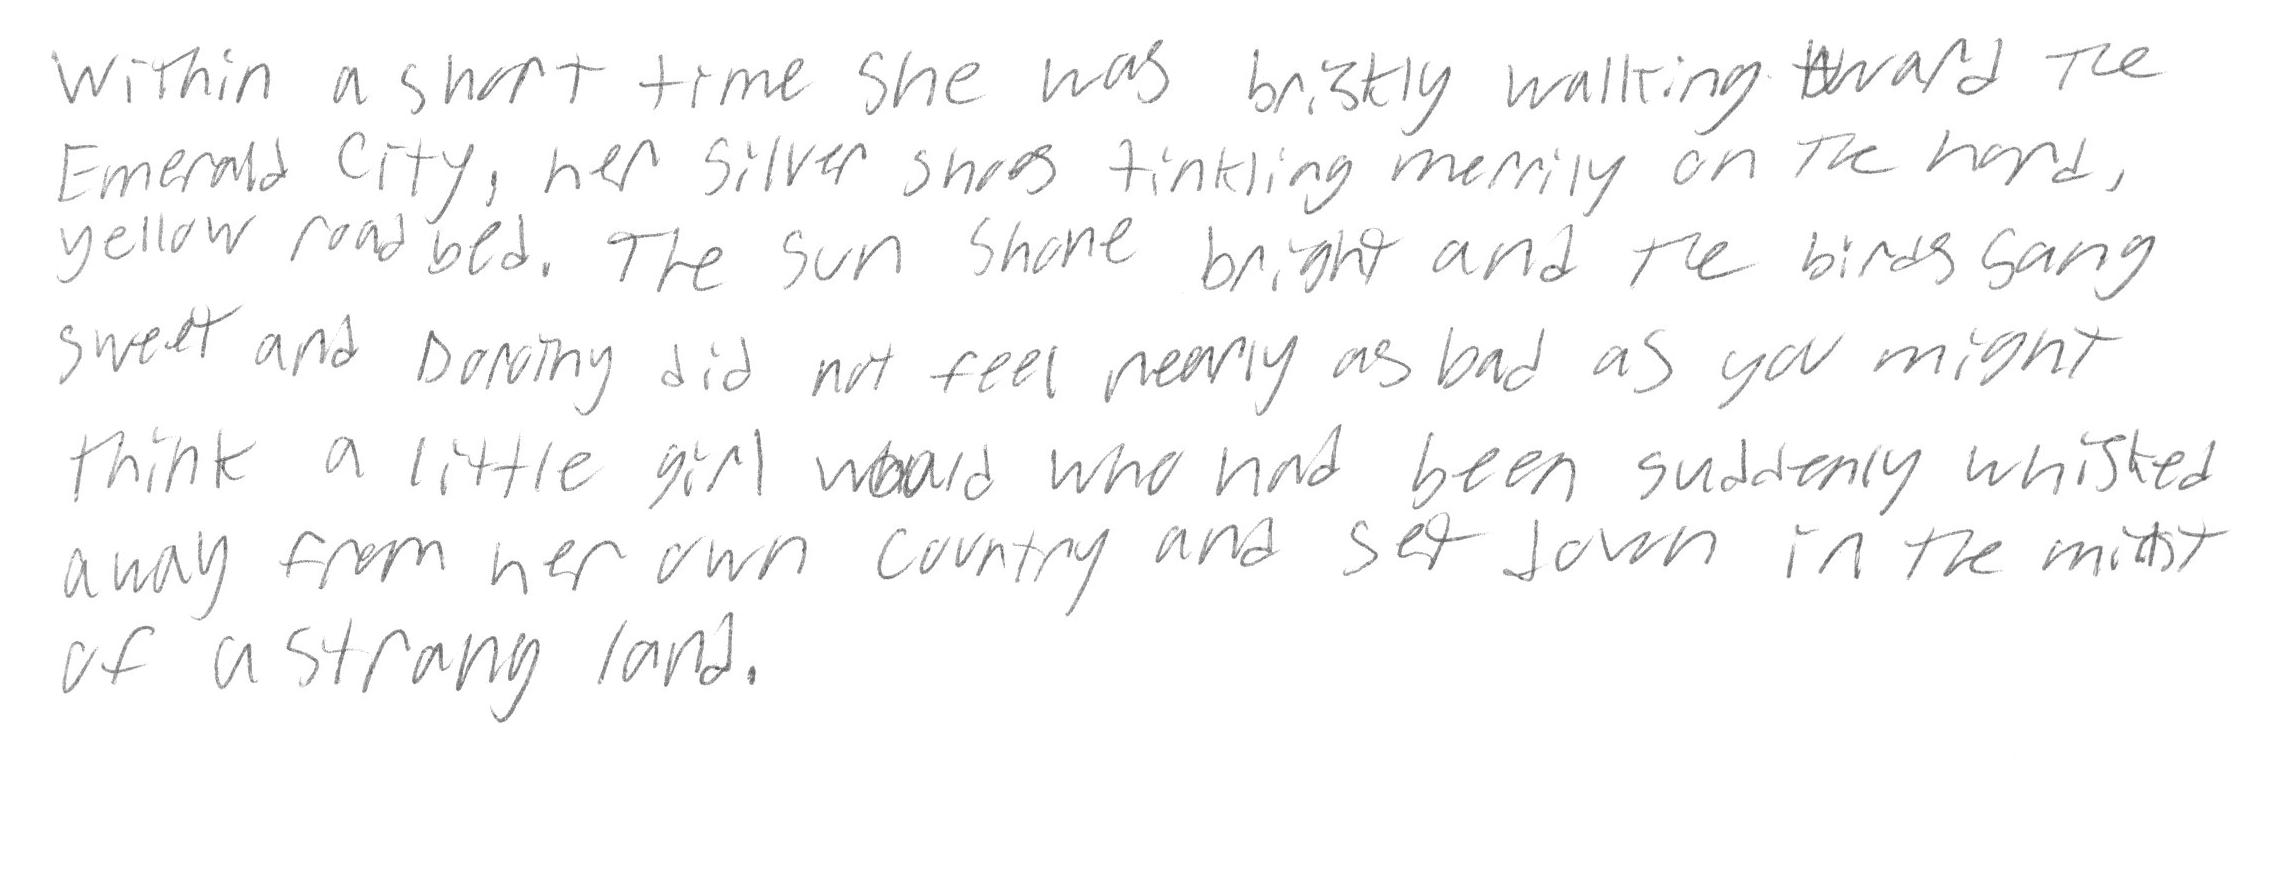 Within a short time she was briskly walking toward the
Emerald City, her silver shoes tinkling merrily on the hard,
yellow road bed. The sun shone bright and the birds sang
sweet and Dorothy did not feel nearly as bad as you might
think a little girl would who had been suddenly whisked
away from her own country and set down in the midst
of a strang land.